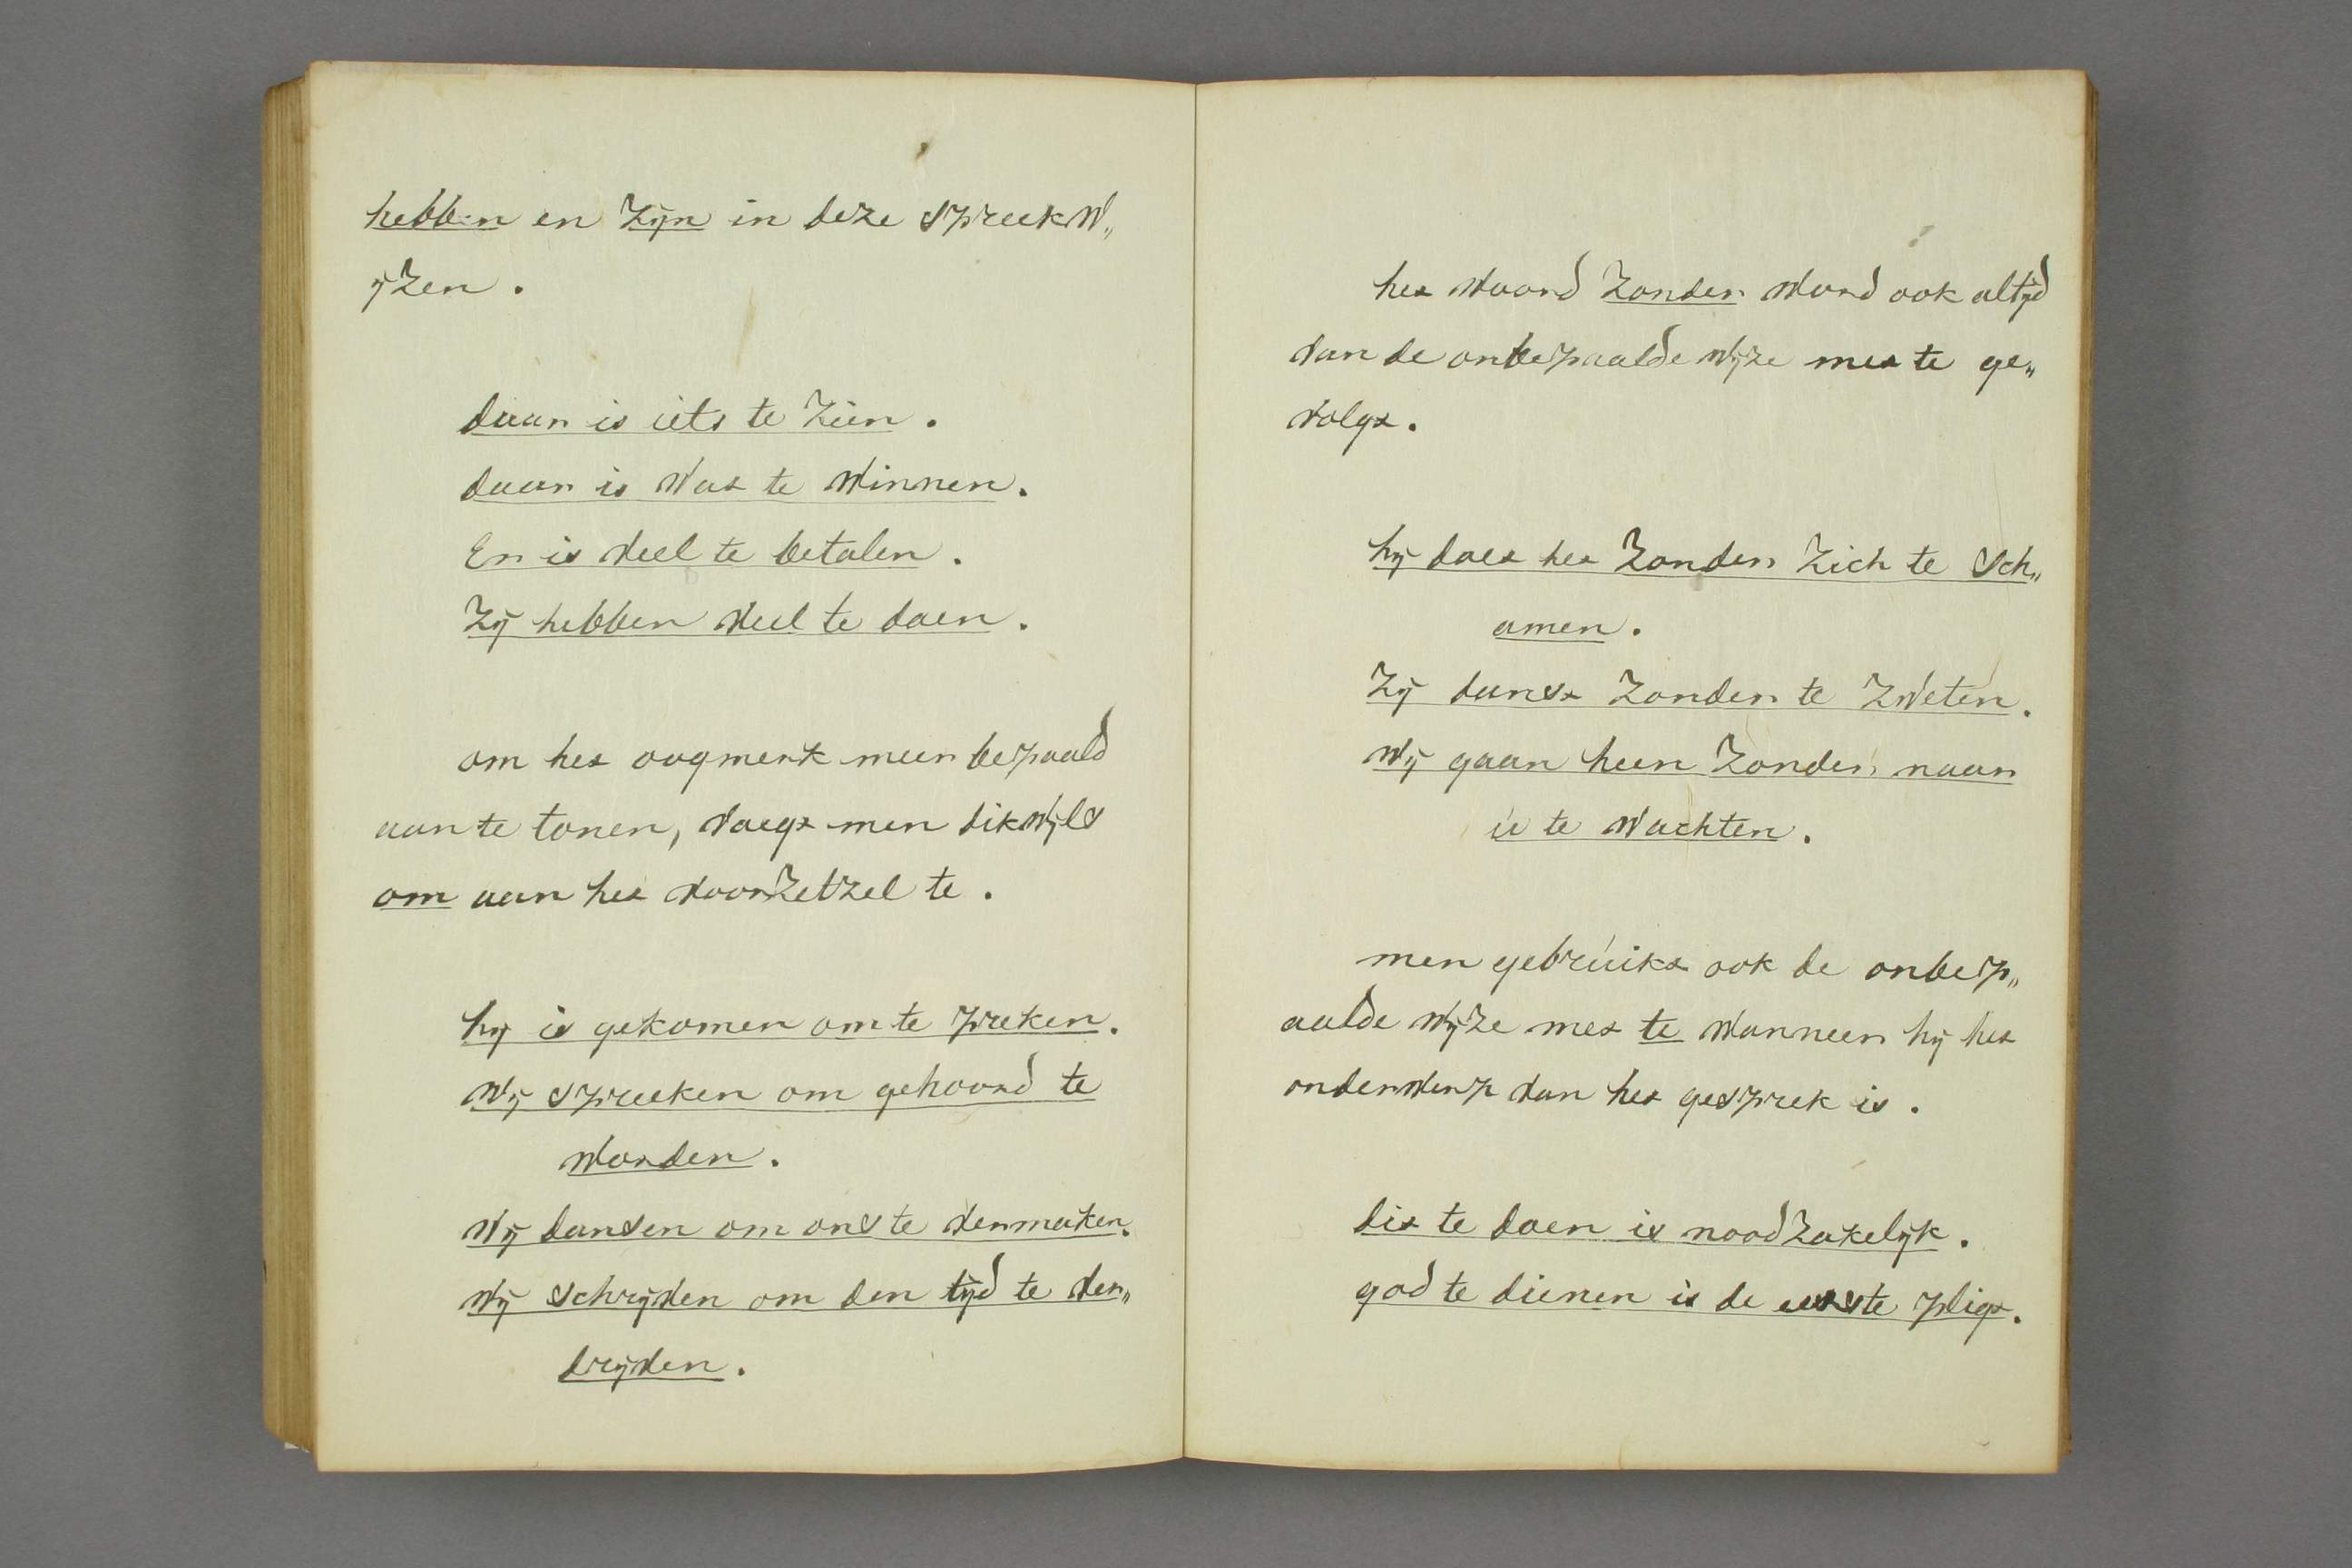 hebben en zijn in deze spreekw„
ijzen.
daar is iets te zien.
daar is wat te winnen.
Er is veel te betalen.
Zij hebben veel te doen.
om het oogmerk meer bepaald
aan te tonen, voegt men dikwijls
om aan het voorzetzel te.
hij is gekomen om te preken.
wij spreeken om gehoord te
worden.
wij dansen om ons te vermaken.
wij schrijven om den tijd te ver„
drijven.
het woord zonder word ook altijd
van de onbepaalde wijze met te ge„
volgt.
hij doet het zonder zich te sch„
amen.
Zij danst zonder te zweten.
wij gaan heen zonder naar
u te wachten.
men gebruikt ook de onbep„
aalde wijze met te wanneer hij het
onderwerp van het gesprek is.
dit te doen is noodzakelijk.
god te dienen is de eerste pligt.